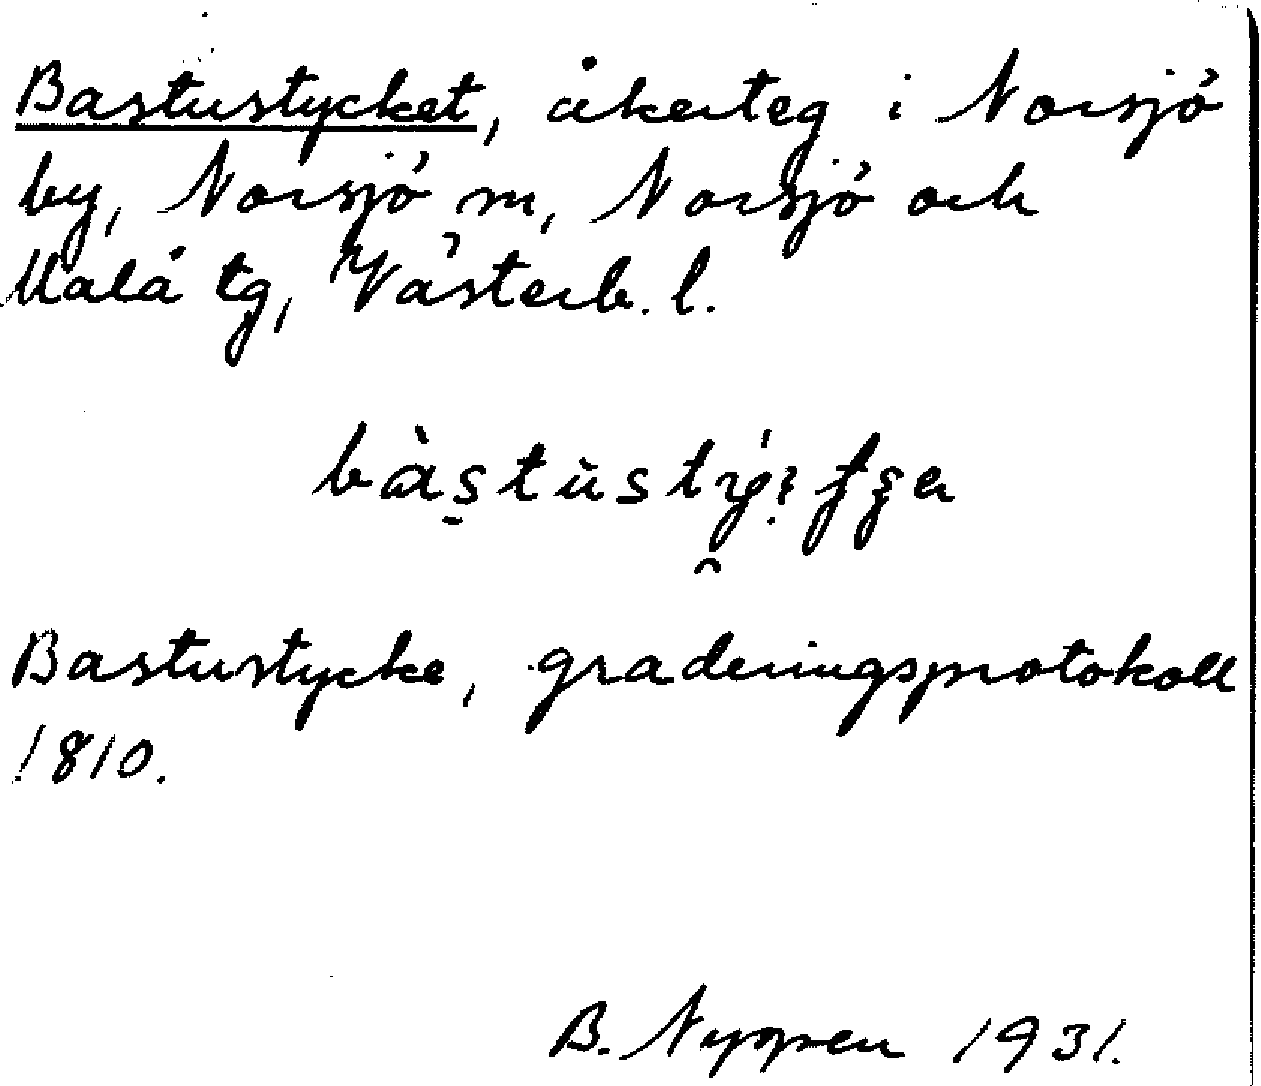 Bastustycket, åkerteg i Norsjö
by, Norsjö m, Norsjö och
Malå tg, Västerb. l.
Bastustycke, graderingsprotokoll
1810.
B. Nyppen 1931.